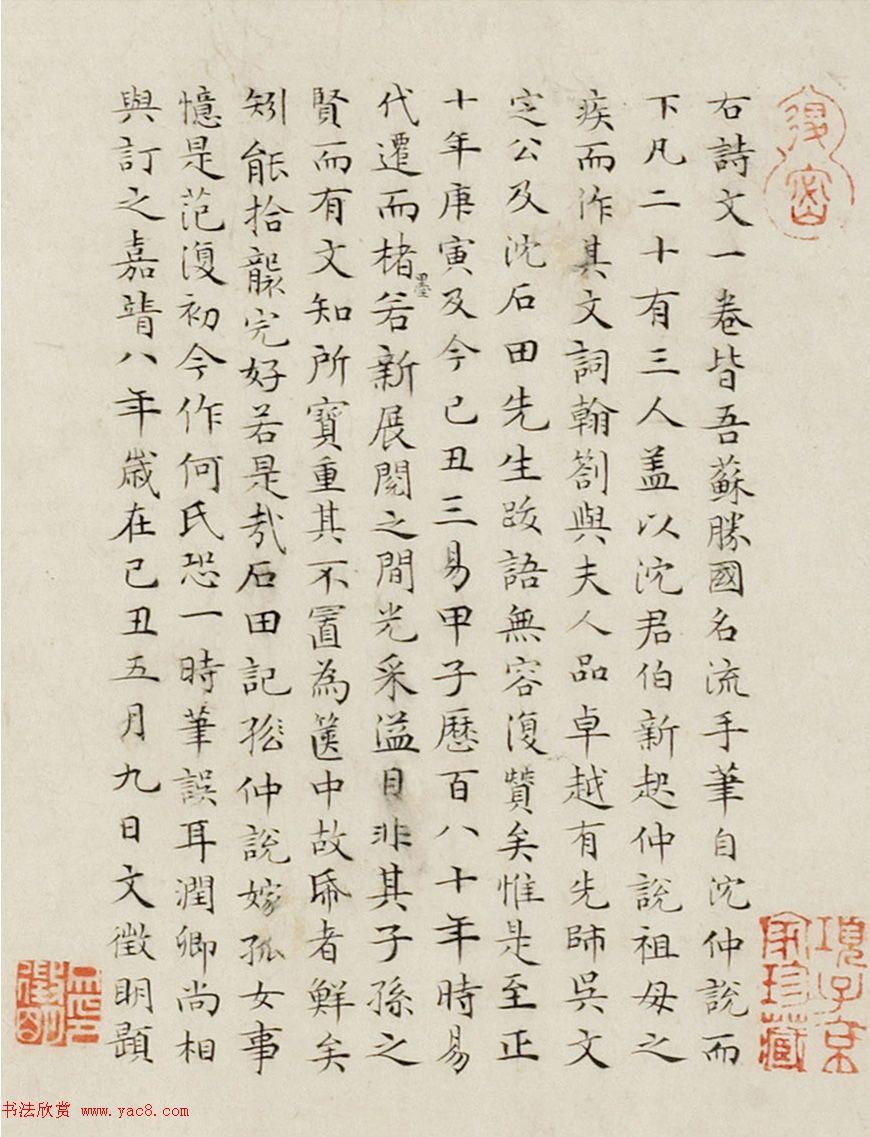 右詩文一卷皆吾蘇勝國名流手筆自沈仲說而
下凡二十有三人盖以沈君伯新起仲說祖母之
疾而作其文詞翰劄與夫人品卓越有先師吳文
定公及沈石田先生跋語無容復贊矣惟是至正
十年庚寅及今己丑三易甲子歷百八十年時易
代遷而楮墨若新展閱之間光采溢目非其子孫之
賢而有文知所寶重其不置為篋中故帋者鮮矣
矧能拾襲完好若是哉石田記孫仲說嫁孤女事
憶是范復初今作何氏恐一時筆誤耳潤卿尚相
與訂之嘉靖八年歲在己丑五月九日文徵明題
項子京
家珍藏
文徵
明印
书法欣赏 www.yac8.com